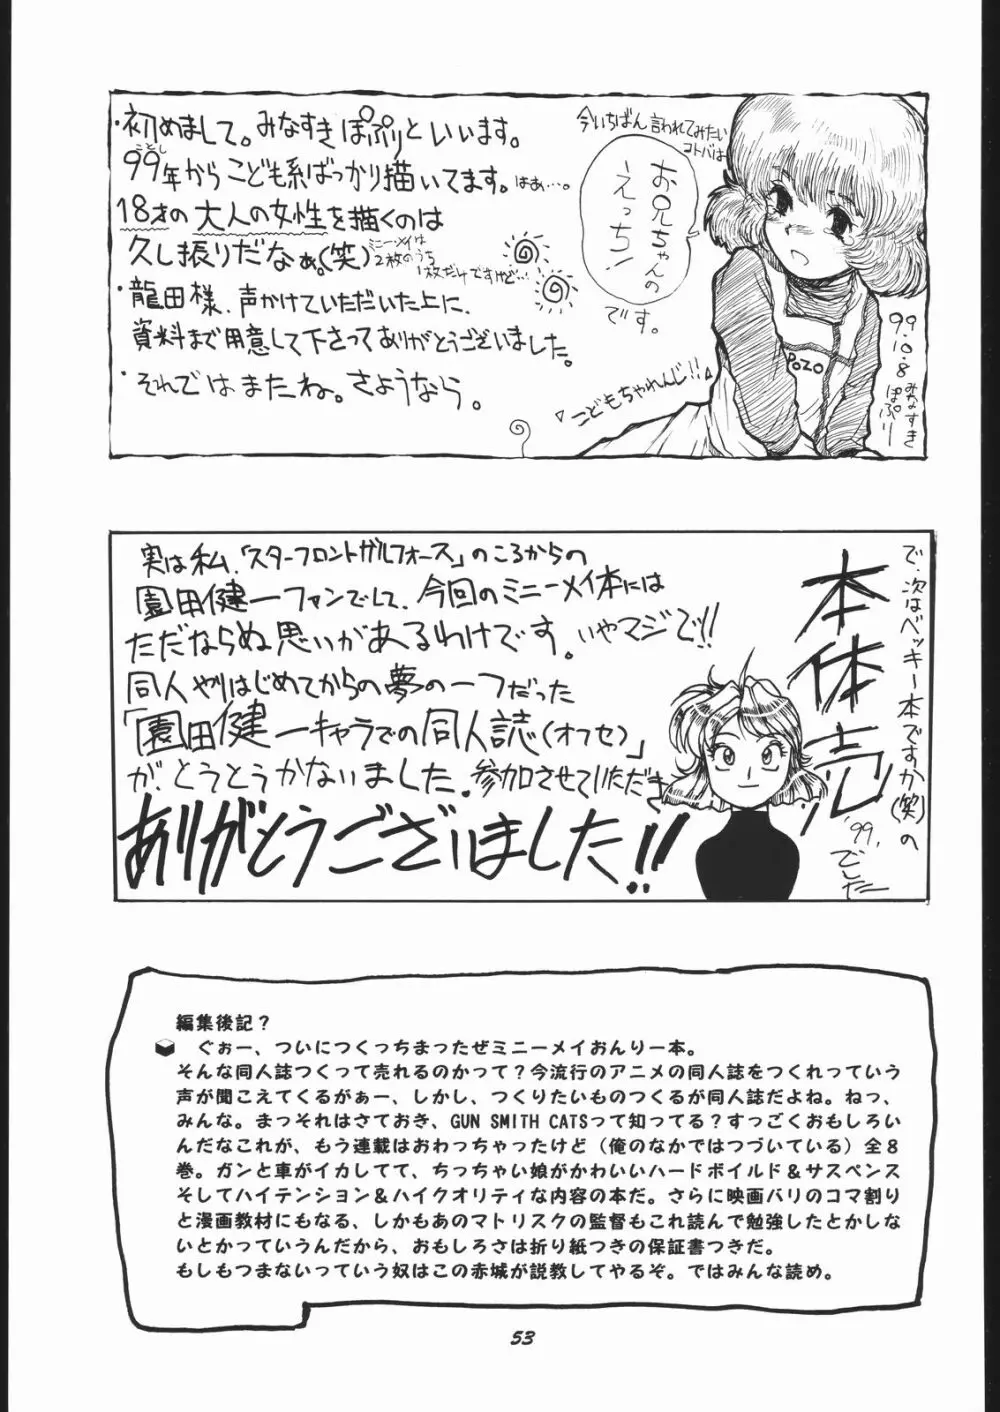 ・初めまして。みなすきぽぷりといいます。
99年からこども系ばっかり描いてます。はあ…。
ことし
18才の大人の女性を描くのは
久し振りだなぁ。(笑)
ミニーメイは
2枚のうち
1枚だけですけど…!
・龍田様、声かけていただいた上に、
資料まで用意して下さってありがとうございました。
・それではまたね。さようなら。
今いちばん言われてみたい
コトバは
お兄ちゃんの
えっち!
です。
▽こどもちゃれんじ!!△
POZO
99.10.8
みなすき
ぽぷり
実は私、「スターフロントガルフォース」のころからの
園田健一ファンでして、今回のミニーメイ本には
ただならぬ思いがあるわけです。いやマジで!!
同人やりはじめてからの夢の一つだった
「園田健一キャラでの同人誌(オフセ)」
が、とうとうかないました。参加させていただき
ありがとうございました!!
で、次はベッキー本ですか(笑)の
本体売ッ
'99,
でした
編集後記?
ぐぉー、ついにつくっちまったぜミニーメイおんりー本。
そんな同人誌つくって売れるのかって?今流行のアニメの同人誌をつくれっていう
声が聞こえてくるがぁー、しかし、つくりたいものつくるが同人誌だよね。ねっ、
みんな。まっそれはさておき、GUN SMITH CATSって知ってる?すっごくおもしろい
んだなこれが、もう連載はおわっちゃったけど(俺のなかではつづいている)全8
巻。ガンと車がイカしてて、ちっちゃい娘がかわいいハードボイルド&サスペンス
そしてハイテンション&ハイクオリティな内容の本だ。さらに映画バリのコマ割り
と漫画教材にもなる、しかもあのマトリスクの監督もこれ読んで勉強したとかしな
いとかっていうんだから、おもしろさは折り紙つきの保証書つきだ。
もしもつまないっていう奴はこの赤城が説教してやるぞ。ではみんな読め。
53